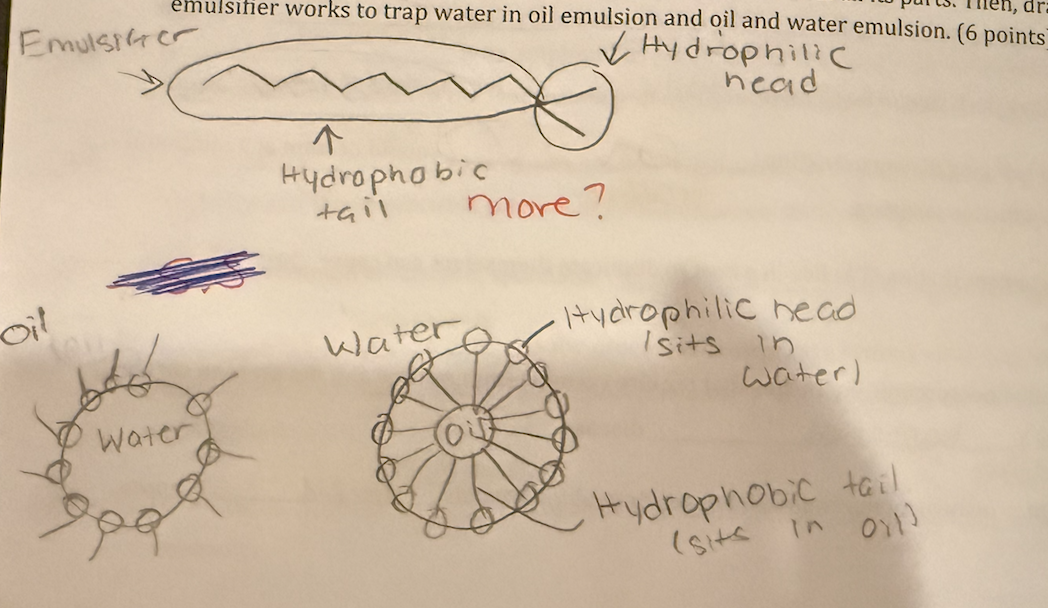 parts. Then, dra
emulsifier works to trap water in oil emulsion and oil and water emulsion. (6 points
Emulsifier
Hydrophilic
head
Hydrophobic
tail
more?
Oil
Water
Water
Oil
Hydrophilic head
(sits in
water)
Hydrophobic tail
(sits in oil)